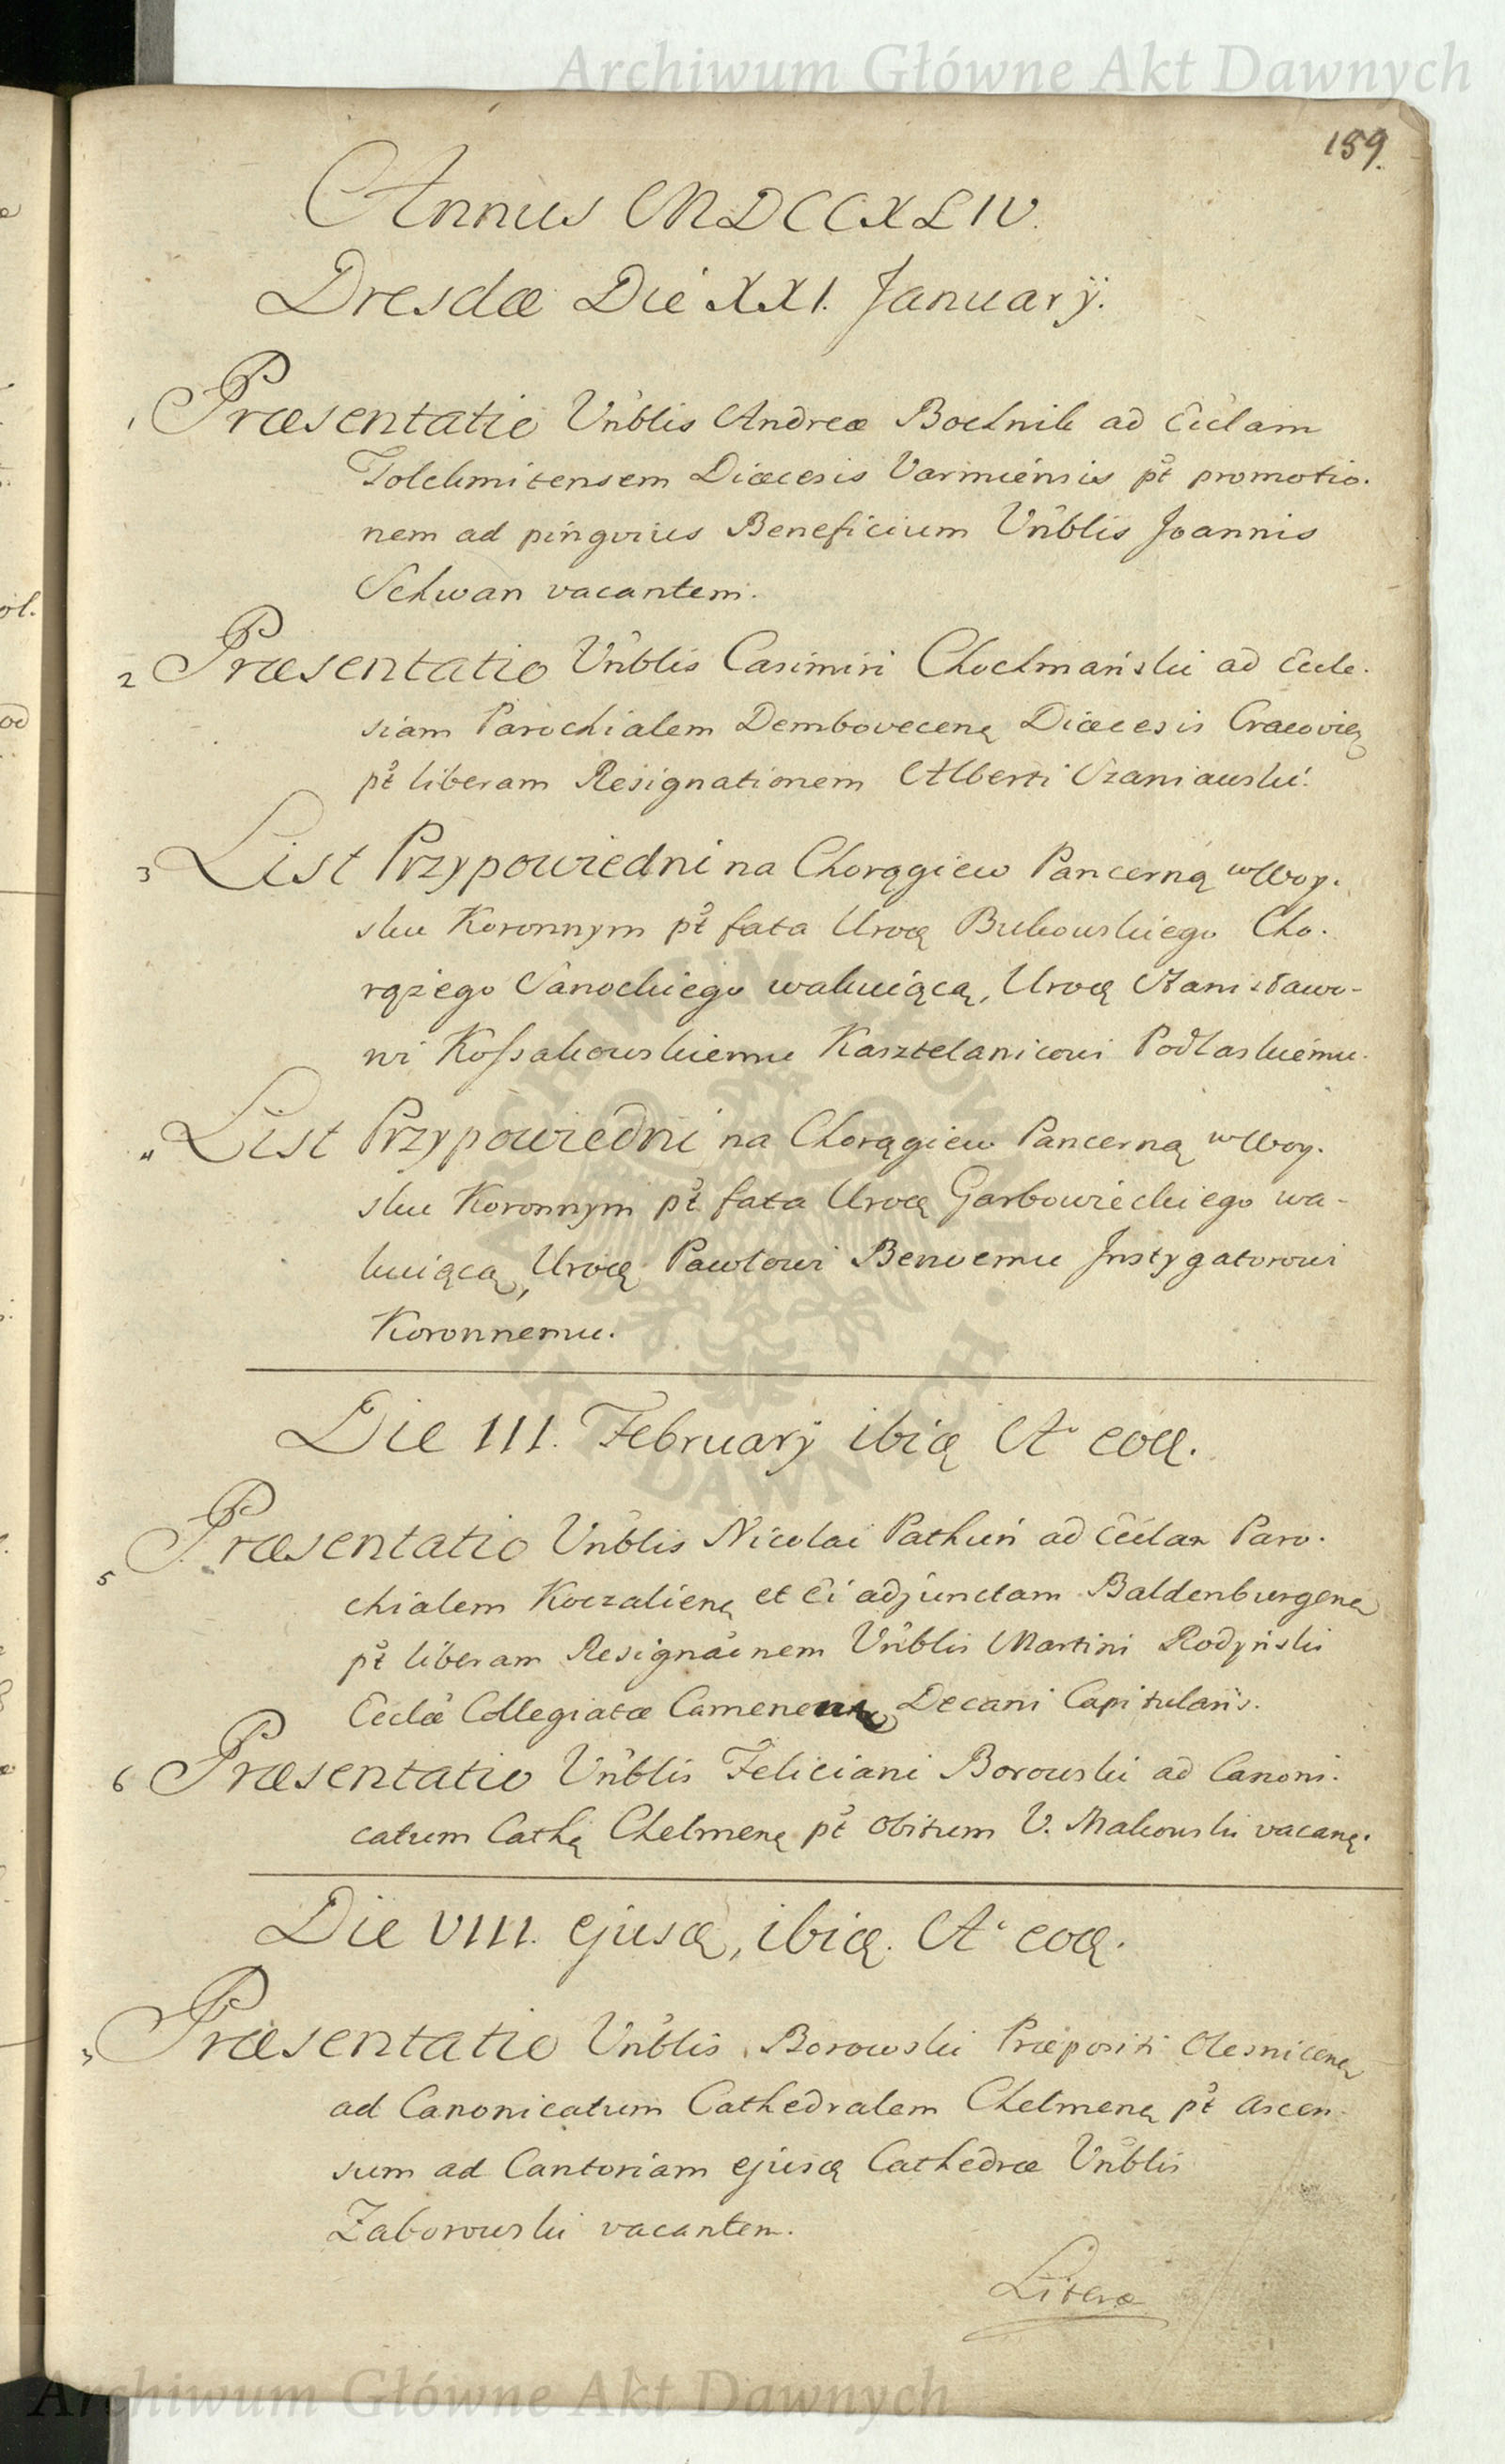 Archiwum Główne Akt Dawnych
159.
Annus MDCCXLIV.
Dresdæ Die XXI. Januarÿ.
1 Præsentatio Vñblis Andreæ Boehnik ad Ecclam
Tolckmitensem Diæcesis Varmiensis pt promotio.
nem ad pingvius Beneficium Vñblis Joannis
Schwan vacantem.
2 Præsentatio Vñblis Casimiri Chochmański ad Eccle.
siam Parochialem Dembovecenę Diæcesis Cracovieę
pt liberam Resignationem Alberti Szaniawski.
3 List Przypowiedni na Chorągiew Pancerną w Woy.
sku Koronnym pt fata Uroę Bukowskiego Cho.
rążego Sanockiego wakuiącą, Uroę Stanisławo-
wi Kossakowskiemu Kasztelanicowi Podlaskiemu.
4 List Przypowiedni na Chorągiew Pancerną w Woy.
sku Koronnym pt fata Uroę Garbowieckiego wa-
kuiącą, Uroę Pawłowi Benoemu Instygatorowi
Koronnemu.
Die III. Februarÿ ibię A° eoę.
5 Præsentatio Vñblis Nicolai Pathun ad Ecclam Paro.
chialem Koczalienę et Ei adjunctam Baldenburgenę
pt liberam Resignaõnem Vñblis Martini Rodyński
Ecclæ Collegiatæ Camenenę Decani Capitularis.
6 Præsentatio Vñblis Feliciani Borowski ad Canoni.
catum Cathę Chelmenę pt obitum V. Makowski vacanę.
Die VIII. ejusę, ibię. A° eoę.
7 Præsentatio Vñblis Borowski Præpositi Olesnicenę
ad Canonicatum Cathedralem Chelmenę pt ascen.
sum ad Cantoriam ejusę Cathedræ Vñblis
Zaborowski vacantem.
Literæ
Archiwum Główne Akt Dawnych